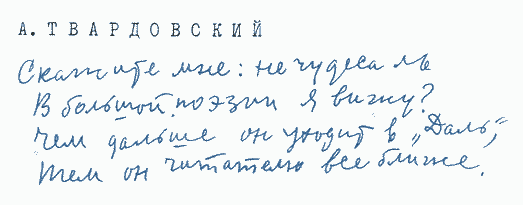 А. ТВАРДОВСКИЙ
Скажите мне: не чудеса ль
В большой поэзии я вижу?
Чем дальше он уходит в „Даль“,
Тем он читателю все ближе.